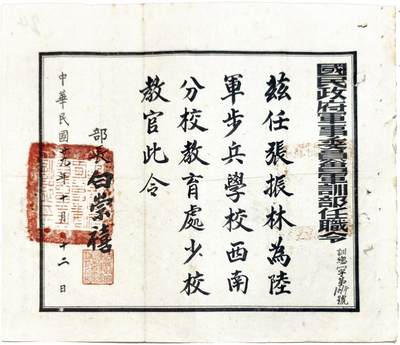 國民政府軍事委員會軍訓部任職令
茲任張振林為陸
軍步兵學校西南
分校教育處少校
教官此令
部長白崇禧
中華民國廿九年十月十二日